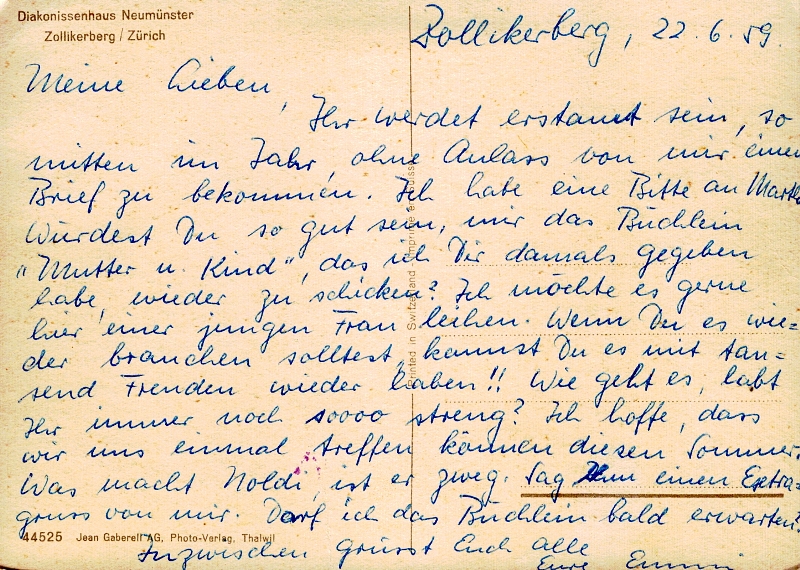 Diakonissenhaus Neumünster
Zollikerberg / Zürich
Zollikerberg, 22.6.59.
Meine Lieben,
Ihr werdet erstaunt sein, so
mitten im Jahr, ohne Anlass von mir einen
Brief zu bekommen. Ich habe eine Bitte an Marth
Würdest Du so gut sein, mir das Büchlein
"Mutter u. Kind", das ich Dir damals gegeben
habe, wieder zu schicken? Ich möchte es gerne
hier einer jungen Frau leihen. Wenn Du es wie=
der brauchen solltest, kannst Du es mit tau=
send Freuden wieder haben!! Wie geht es, habt
Ihr immer noch soooo streng? Ich hoffe, dass
wir uns einmal treffen können diesen Sommer.
Was macht Noldi, ist er zweg. Sag Ihm einen Extra=
gruss von mir. Darf ich das Büchlein bald erwarten?
Inzwischen grüsst Euch alle
Eure Emmi
Printed in Switzerland
44525 Jean Gaberell AG, Photo-Verlag, Thalwil